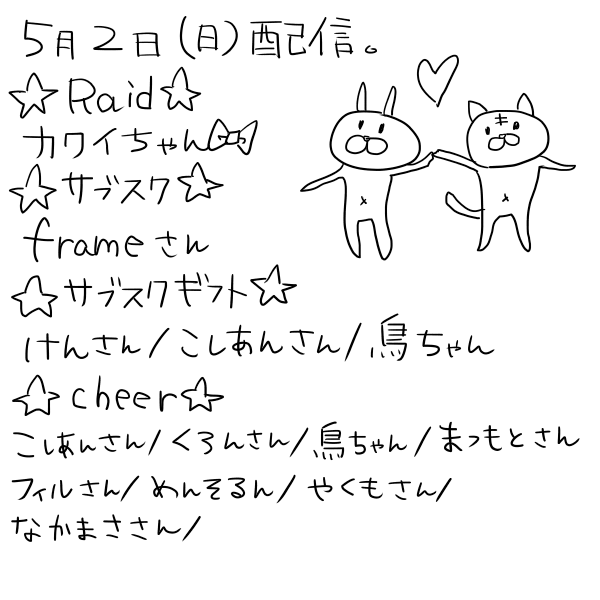 5月2日(日)配信。
☆Raid☆
カワイちゃん
☆サブスク☆
frameさん
☆サブスクギフト☆
けんさん/こしあんさん/鳥ちゃん
☆cheer☆
こしあんさん/くろんさん/鳥ちゃん/まつもとさん
フィルさん/めんそるん/やくもさん/
なかまささん/